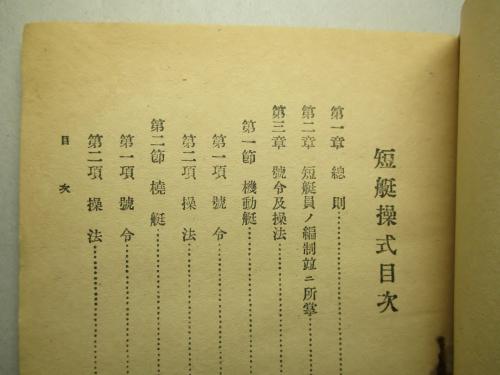 短艇操式目次
第一章 總則
第二章 短艇員ノ編制竝ニ所掌
第三章 號令及操法
第一節 機動艇
第一項 號令
第二項 操法
第二節 橈艇
第一項 號令
第二項 操法
目次